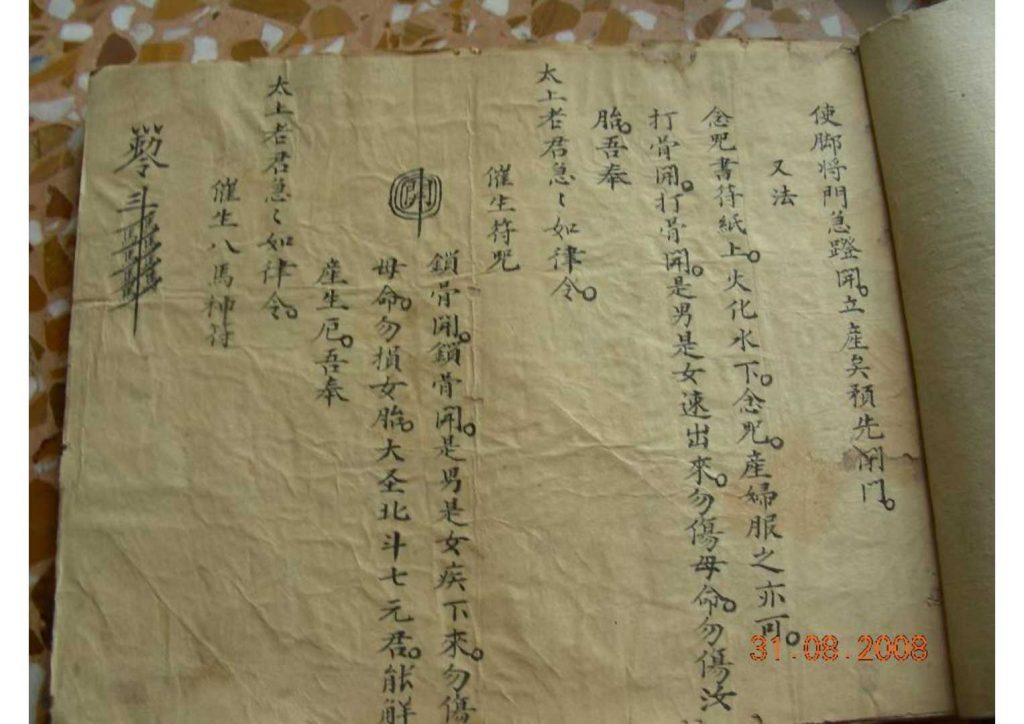 使脚将門急蹬開。立產矣預先閉門。
又法
念咒書符紙上。火化水下。念咒。產婦服之亦可。
打骨開。打骨開。是男是女速出來。勿傷母命。勿傷汝
胎。吾奉
太上老君急〻如律令。
催生符咒
鎖骨開。鎖骨開。是男是女疾下來。勿傷
母命。勿損女胎。大圣北斗七元君。能解
產生厄。吾奉
太上老君急〻如律令。
催生八馬神符
31.08.2008